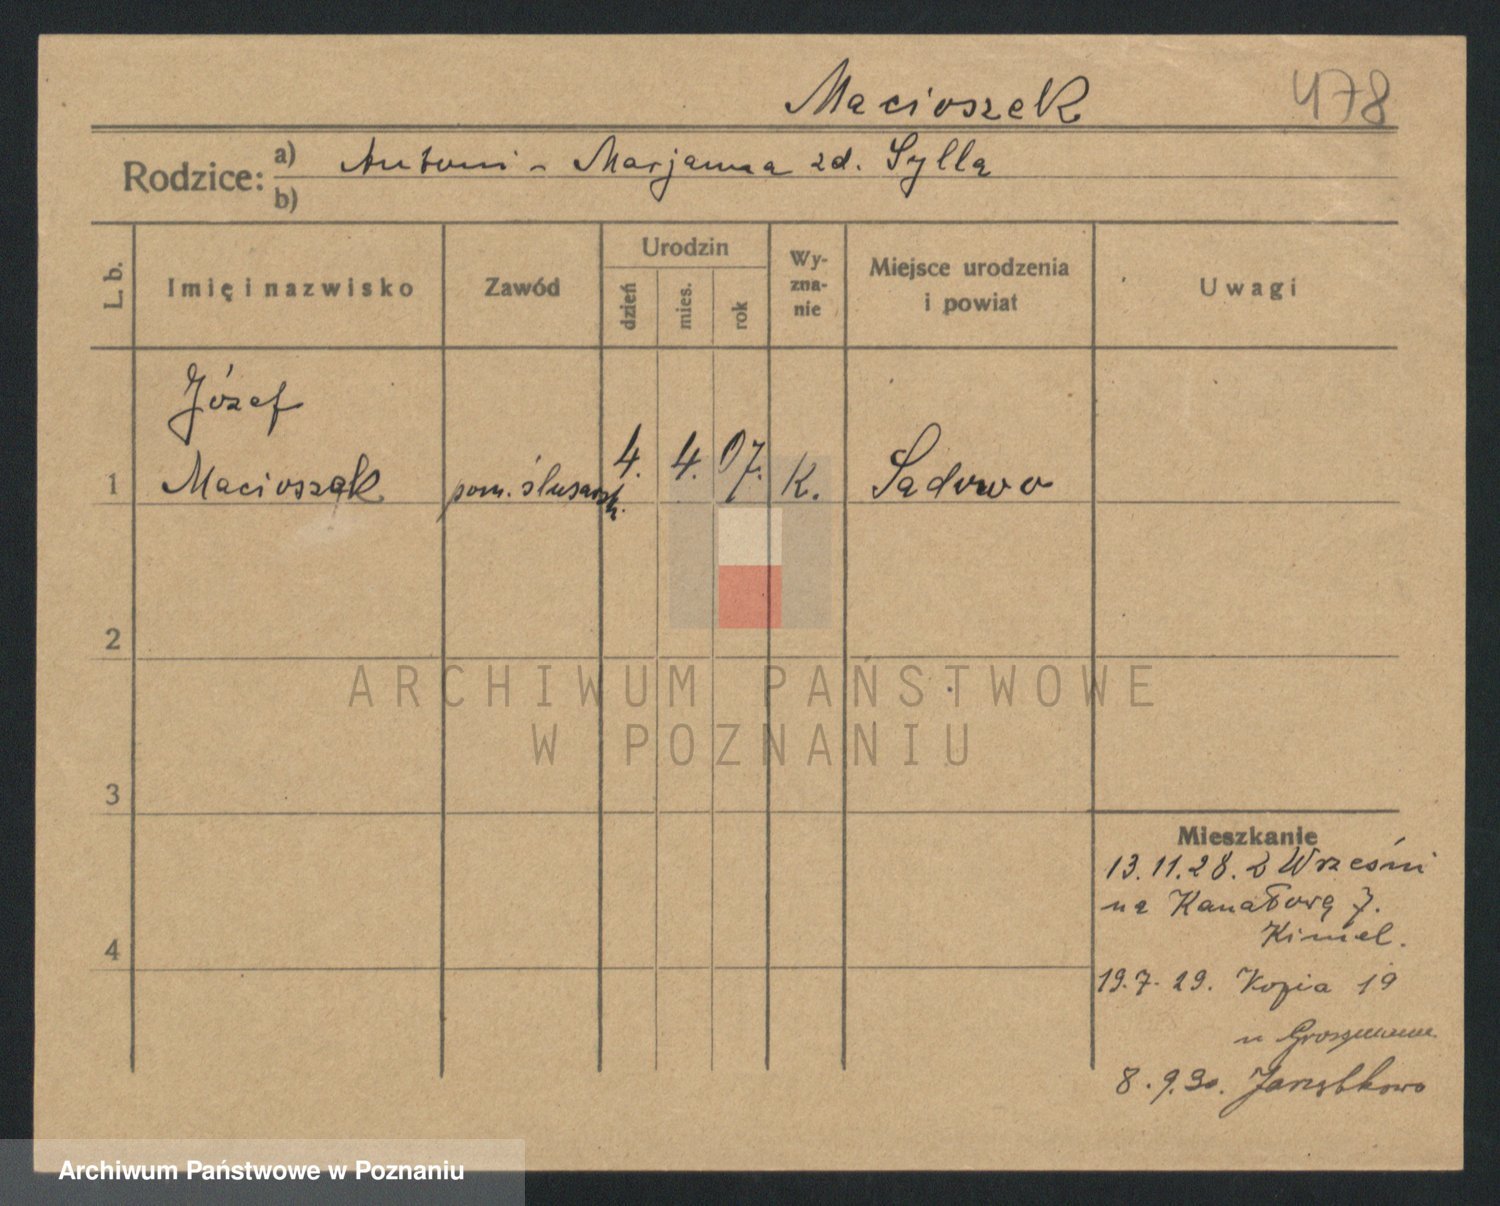 Macioszek 478
Rodzice: a) Antoni - Marjanna zd. Sylla
b)
L. b.
Imię i nazwisko
Zawód
Urodzin
dzień
mies.
rok
Wy-
zna-
nie
Miejsce urodzenia
i powiat
Uwagi
Józef
1 Macioszek pom. ślusarsk. 4. 4. 07. K. Sadowo
2
ARCHIWUM PAŃSTWOWE
W POZNANIU
3
Mieszkanie
13.11.28. z Wrześni
na Kanałową 7.
Kimel.
4
19.7.29. Kopia 19
u
8.9.30. Jarząbkowo
Archiwum Państwowe w Poznaniu